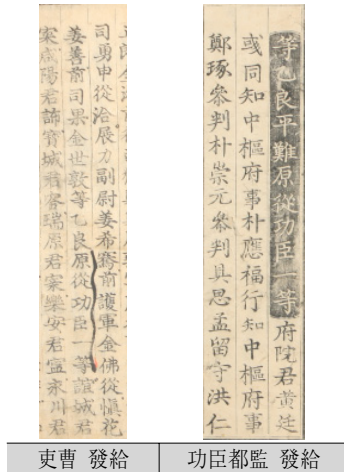 司勇申從洽展力副尉姜希騫前護軍金佛從愼花
姜善前司果金世敦等乙良原從功臣一等誼城君
寀咸陽君諦寶城君峇瑞原君寀樂安君寍永川君
等乙良平難原從功臣一等府院君黃廷
彧同知中樞府事朴應福行知中樞府事
鄭琢叅判朴崇元叅判具思孟留守洪仁
吏曹 發給
功臣都監 發給